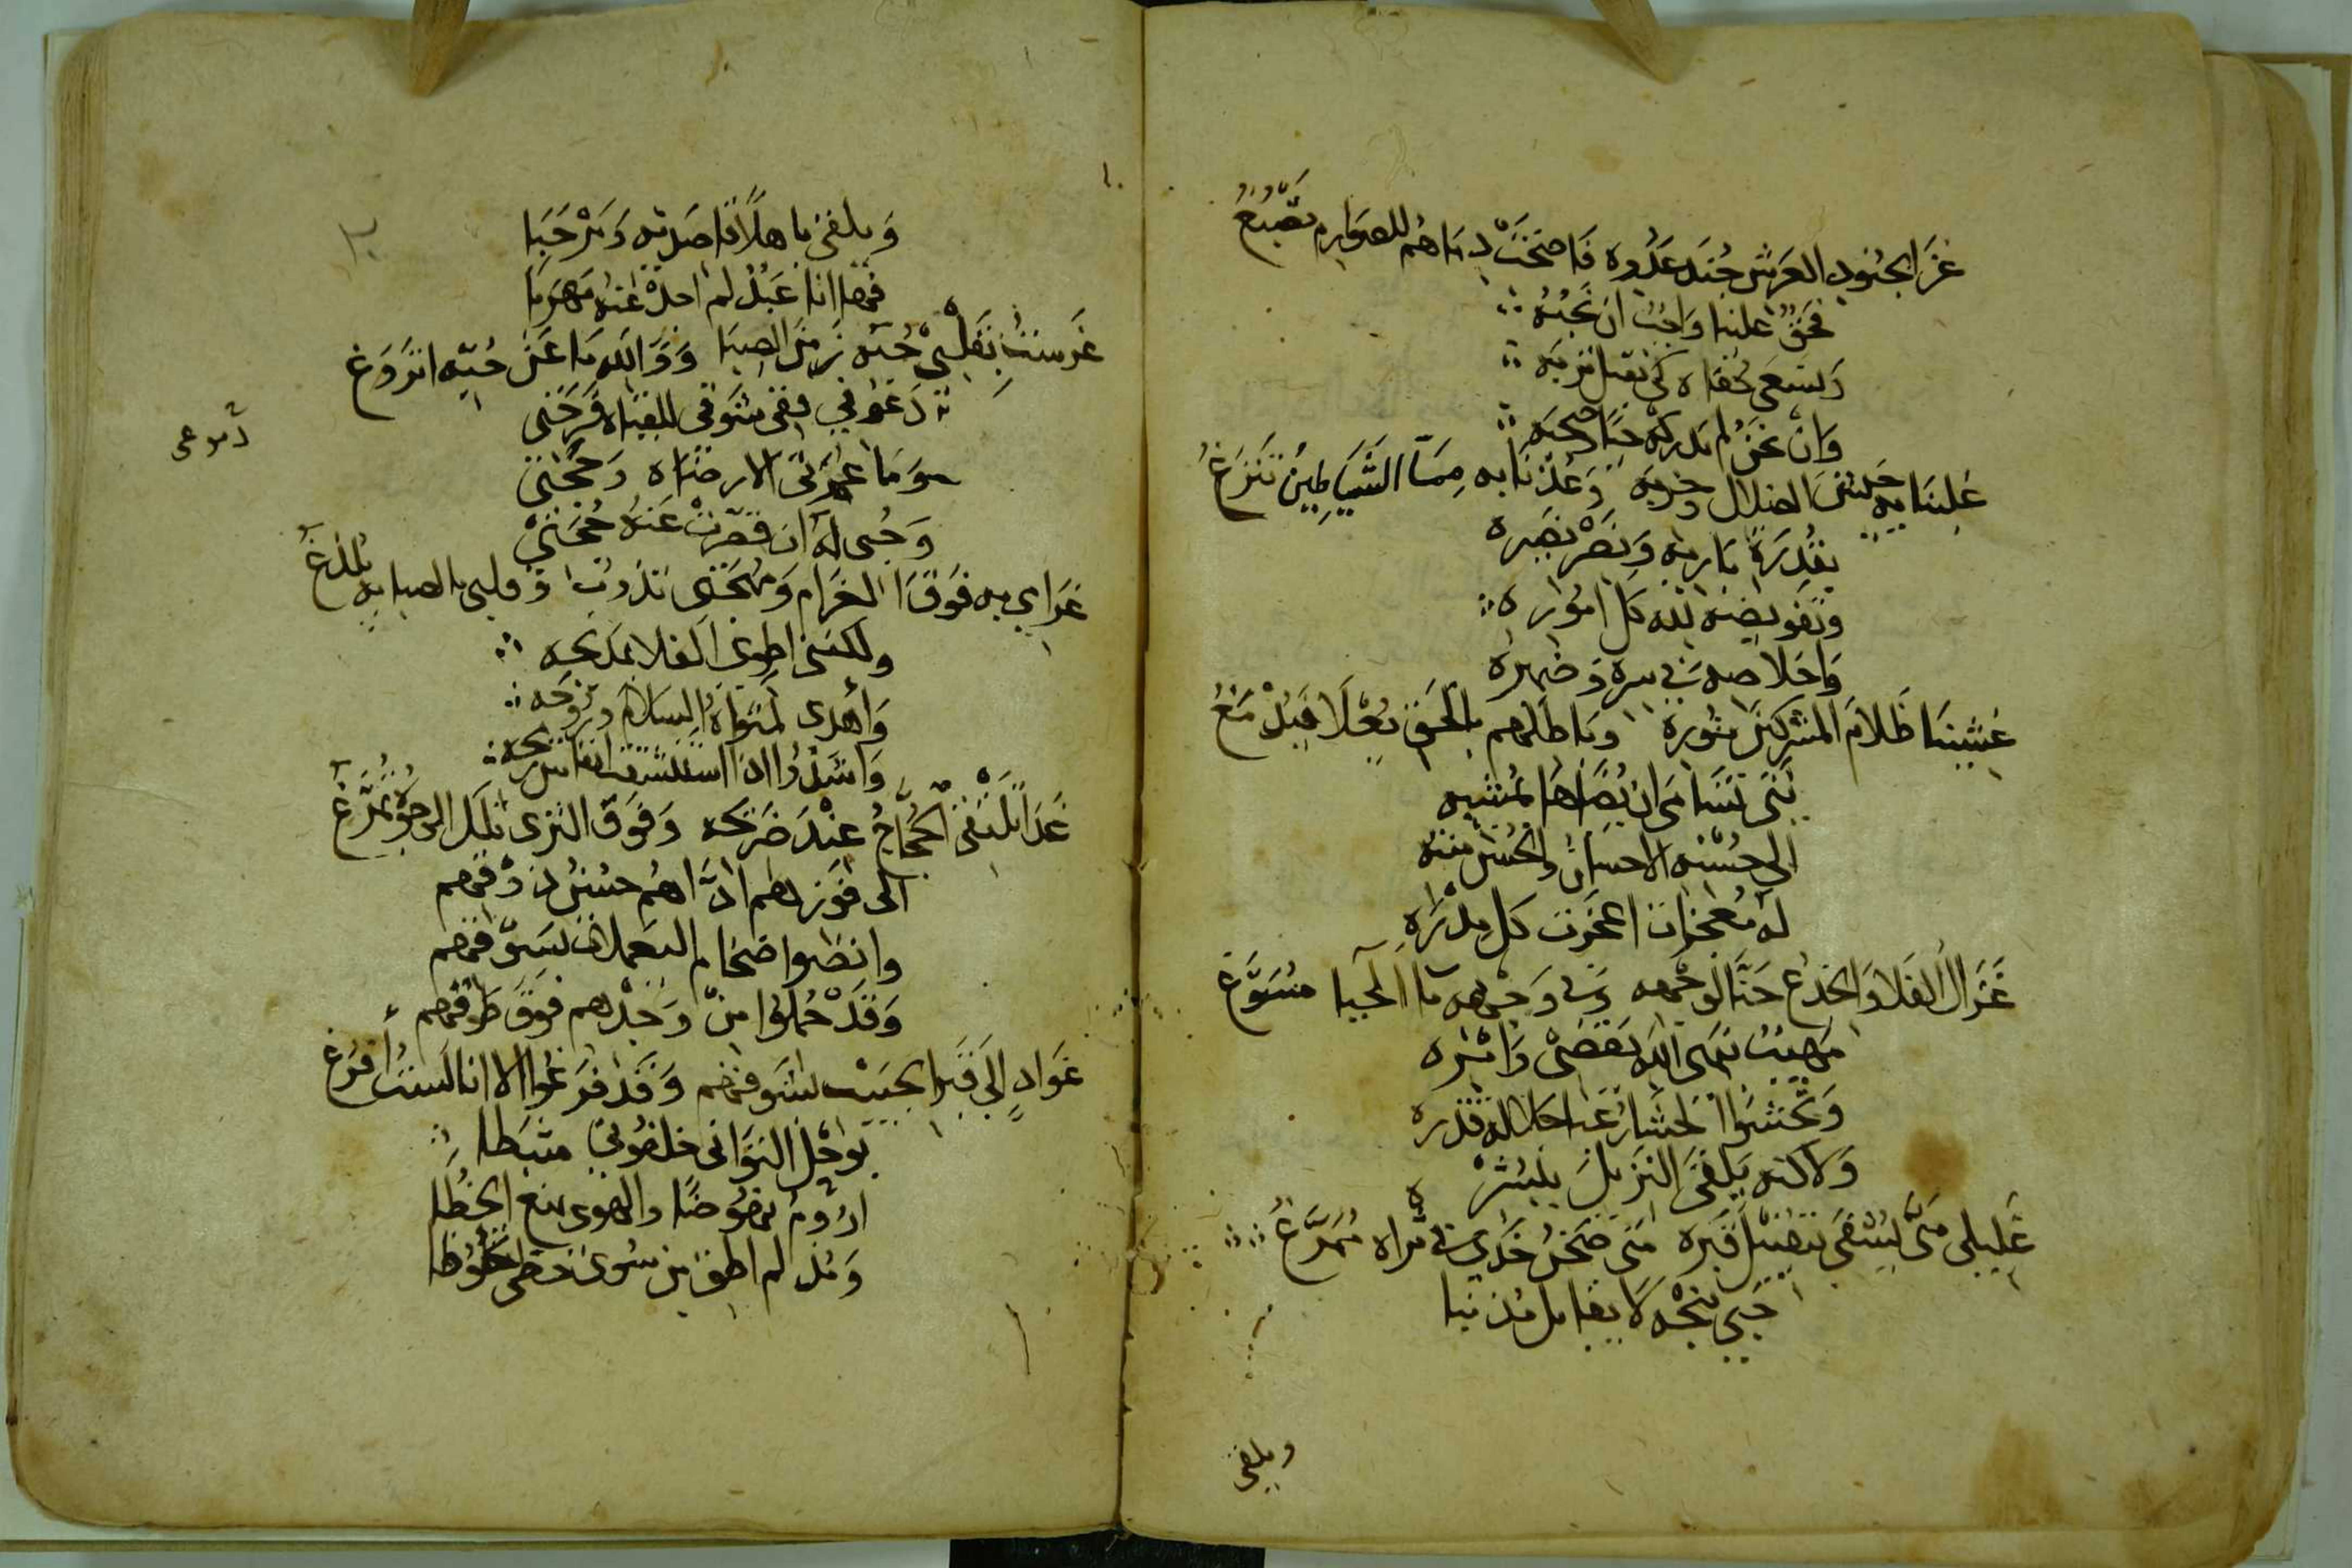 غزا بجنود العرش جند عدوه فاضحت دماهم للصوارم تصبغ
فحق علينا واجب ان نحبه
ونسعى كى نقبل تربه
وان نحن لم ندركه حيا وصحبه
علينا به جيش الضلال وحزبه وعذنا به مما الشياطين تنزغ
بقدرة باريه ونصر نصيره
وتفويضه لله كل اموره
واخلاصه في سره وضميره
غشينا ظلام المشركين بنوره وباطلهم بالحق يعلا فيدمغ
نبى تسامى ان يضاها بمشبه
الى حسنه الاحسان والحسن منته
له معجزات اعجزت كل مدره
غزال الفلا والجذع حنا لوجهه وفي وجهه ما المحيا مسوغ
مهيب نهى الله يقضى وامره
وتخشوا
ولاكنه يلقى النزيل ببشره
غليلى متى يشفى بتقبيل قبره متى صحن خدي في ثراه ممرغ
حبى بنجه لا يقابل مذنبا
ويلقى
ويلقى باهلا قاصديه ومرحبا
فها انا عبد لم اجد عنه مهربا
غرست بقلبي حبه زمن الصبا ووالله ما عن حبه اتروغ
دعوني ففى شوقى للقياه فرحتى
وما عمرتى الا رضاه وحجتى
وحبى له ان قصرت عنه حجتى
غرامي به فوق الغرام ومهجتى تذوب وقلبي بالصبابه يلدغ
دموعى
ولكننى اطوى الفلا بمديحه
واهدى لمثواه السلام وروحه
واشدوا اذا استنشقت انفاس ريحه
غدا يلتقى الحجاج عند ضريحه وفوق الثرى تلك الوجوه تمرغ
الى فوزهم اداهم حسن ذوقهم
وانضوا ضخام اليعملات بسوقهم
وقد حملوا من وجدهم فوق طوقهم
غواد الى قبر الحبيب بشوقهم وقد فرغوا الا انا لست افرغ
بوحل التوانى خلفوني مثبطا
اروم نهوضا والهوى يمنع الخطا
ومذ لم اطق من سوء حظى